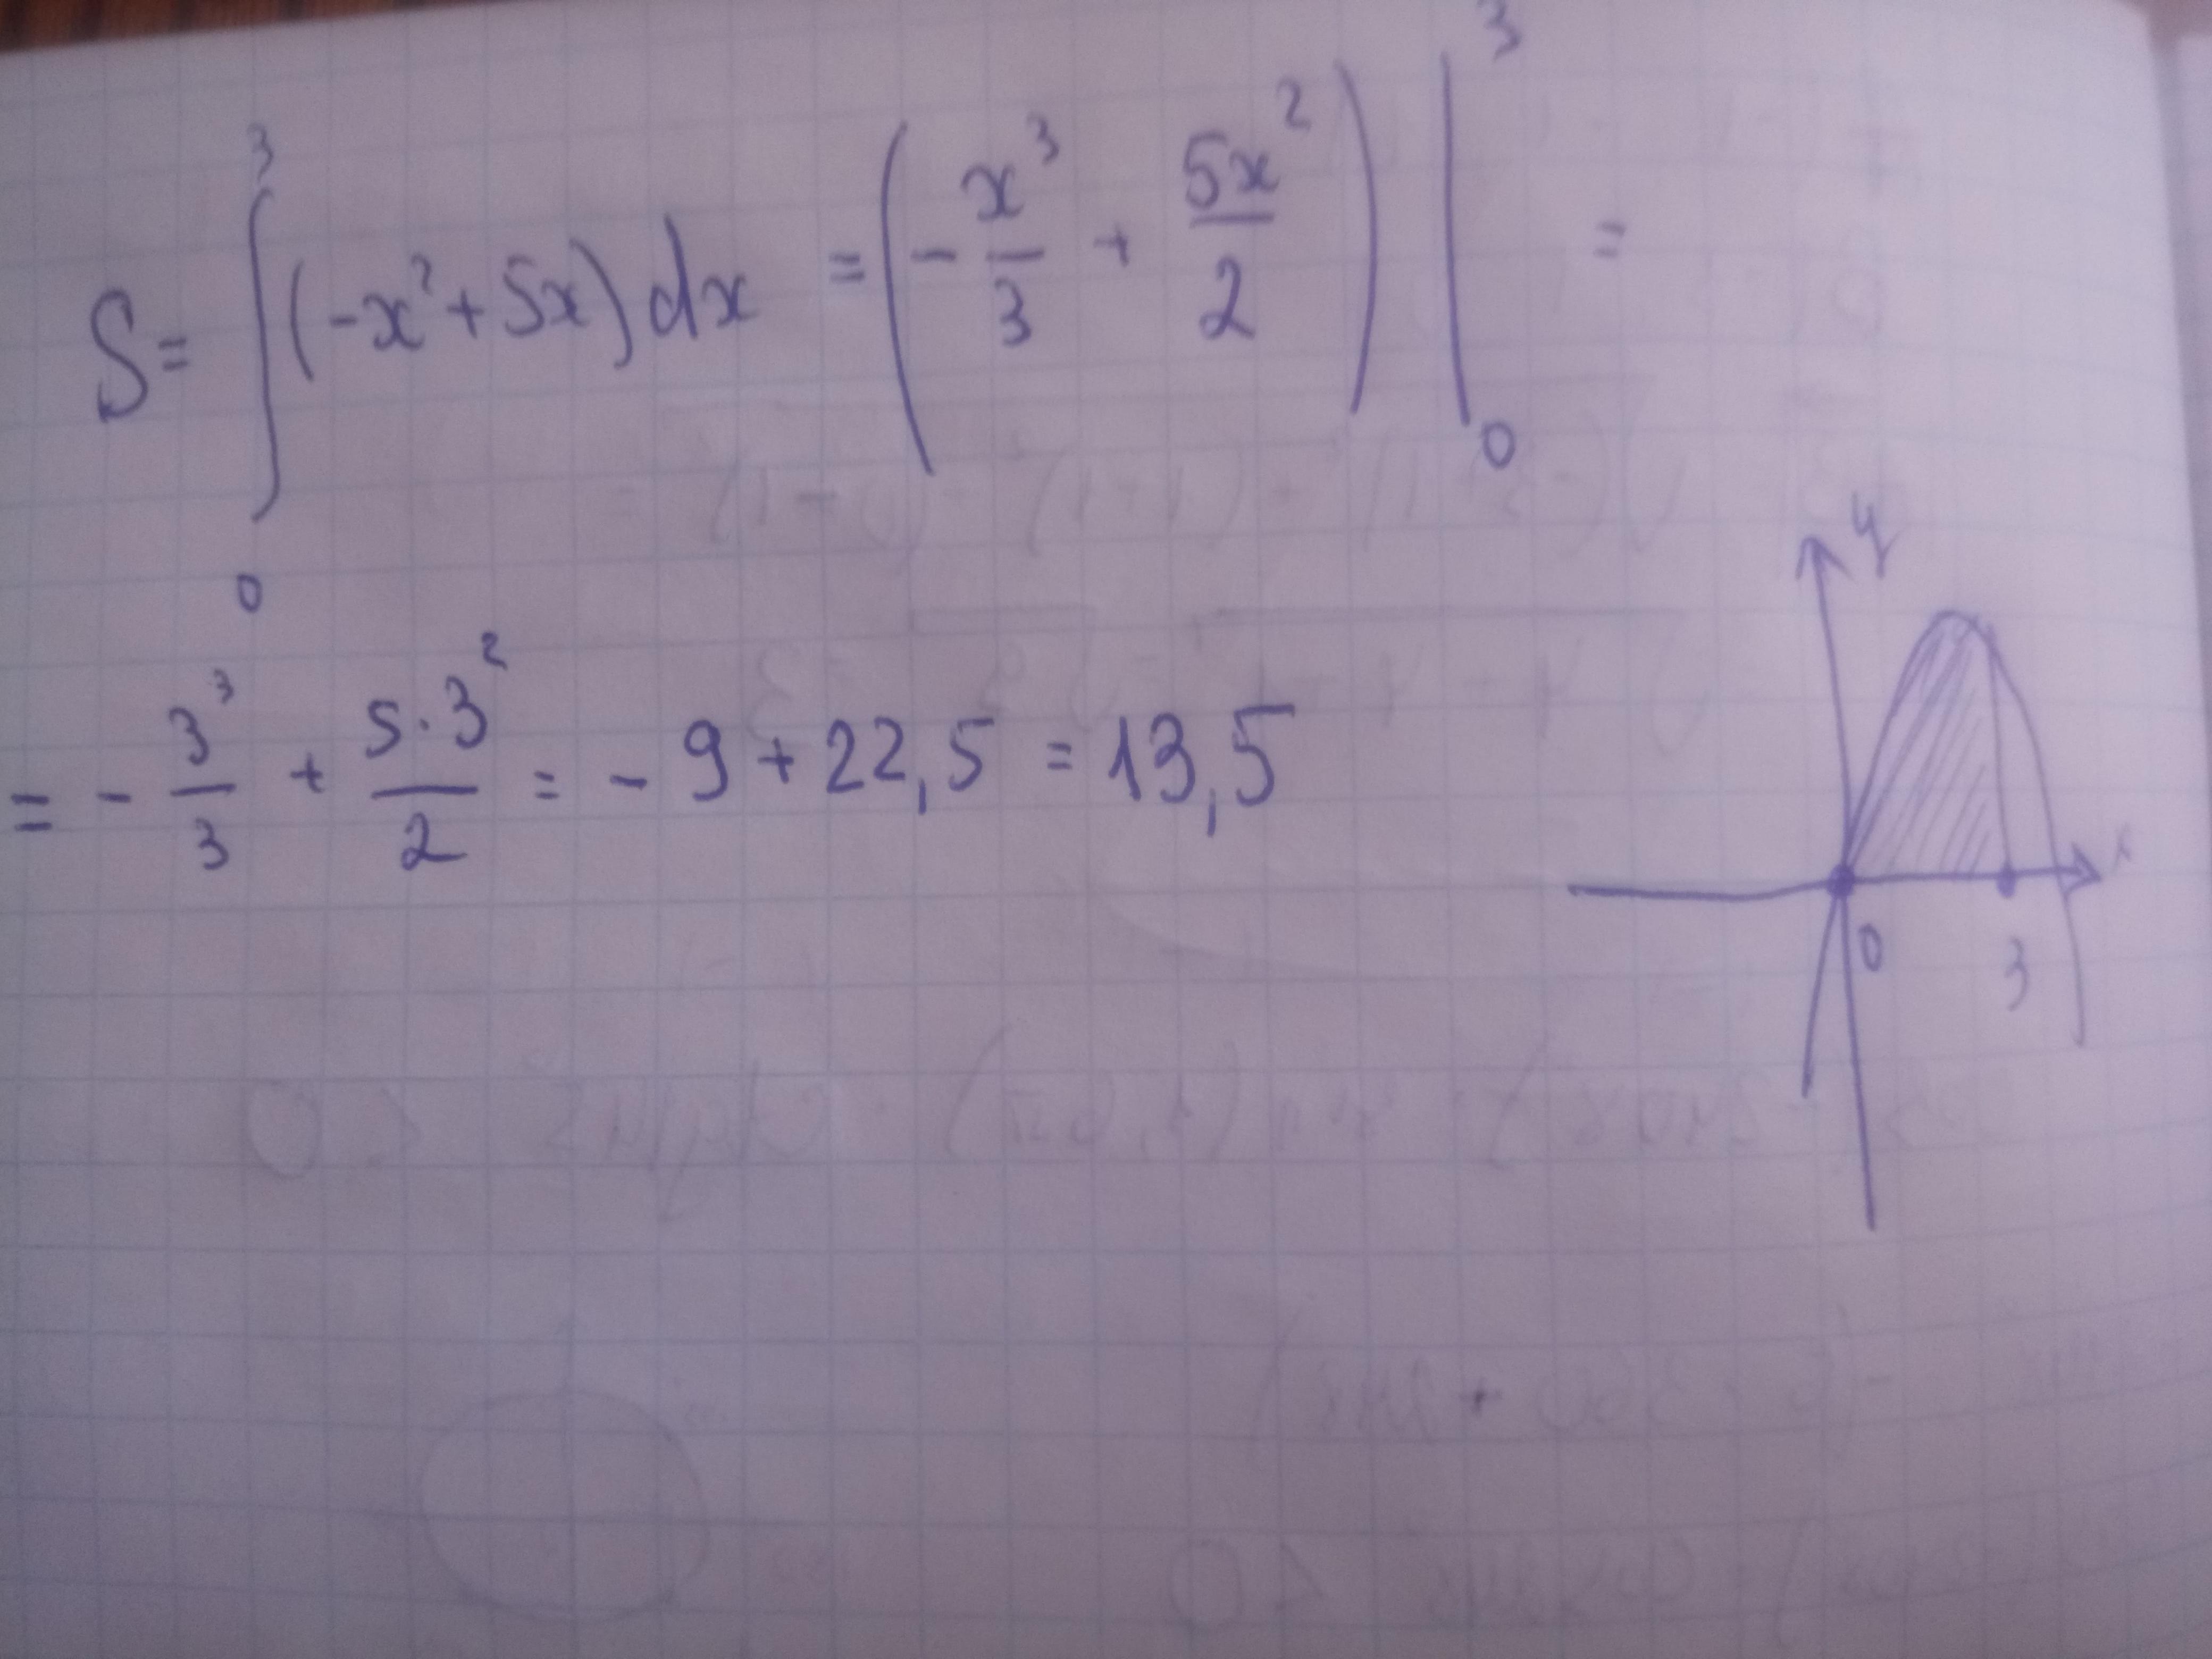 S = ∫₀³ (-x² + 5x) dx = (- x³/3 + 5x²/2) |₀³ =
= - 3³/3 + 5·3²/2 = - 9 + 22,5 = 13,5
y
x
0
3